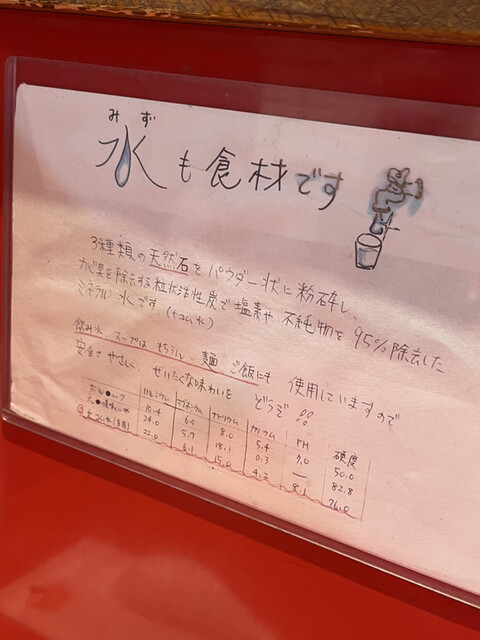 みず
水も食材です
3種類の天然石をパウダー状に粉砕し、
カビ臭を除去する粒状活性炭で塩素や不純物を95%除去した
ミネラル水です
飲み水 スープは もちろん、麺 ご飯にも 使用していますので
安全で やさしく、ぜいたくな味わいを どうぞ!!
カルシウム マグネシウム ナトリウム カリウム PH 硬度
10.4 6.0 8.0 5.4 7.0 50.0
24.0 5.7 18.1 0.3 — 82.8
22.0 5.1 15.0 4.2 8.1 76.0